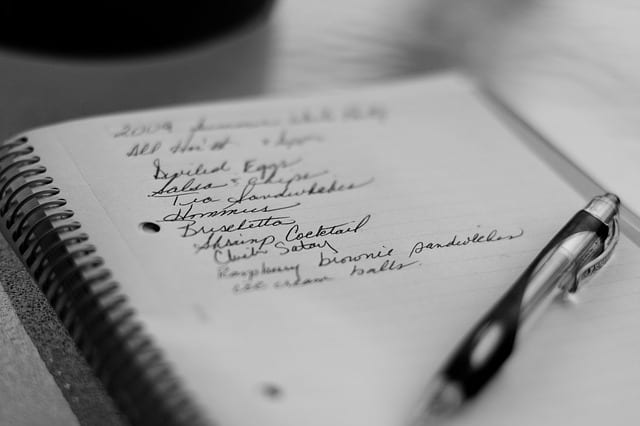 2009 Summer White Party
All Hail
Deviled Eggs
Salsa & Chips
Tea Sandwhiches
Hommus
Bruschetta
Shrimp Cocktail
Satay
Raspberry brownie sandwiches
ice cream balls.